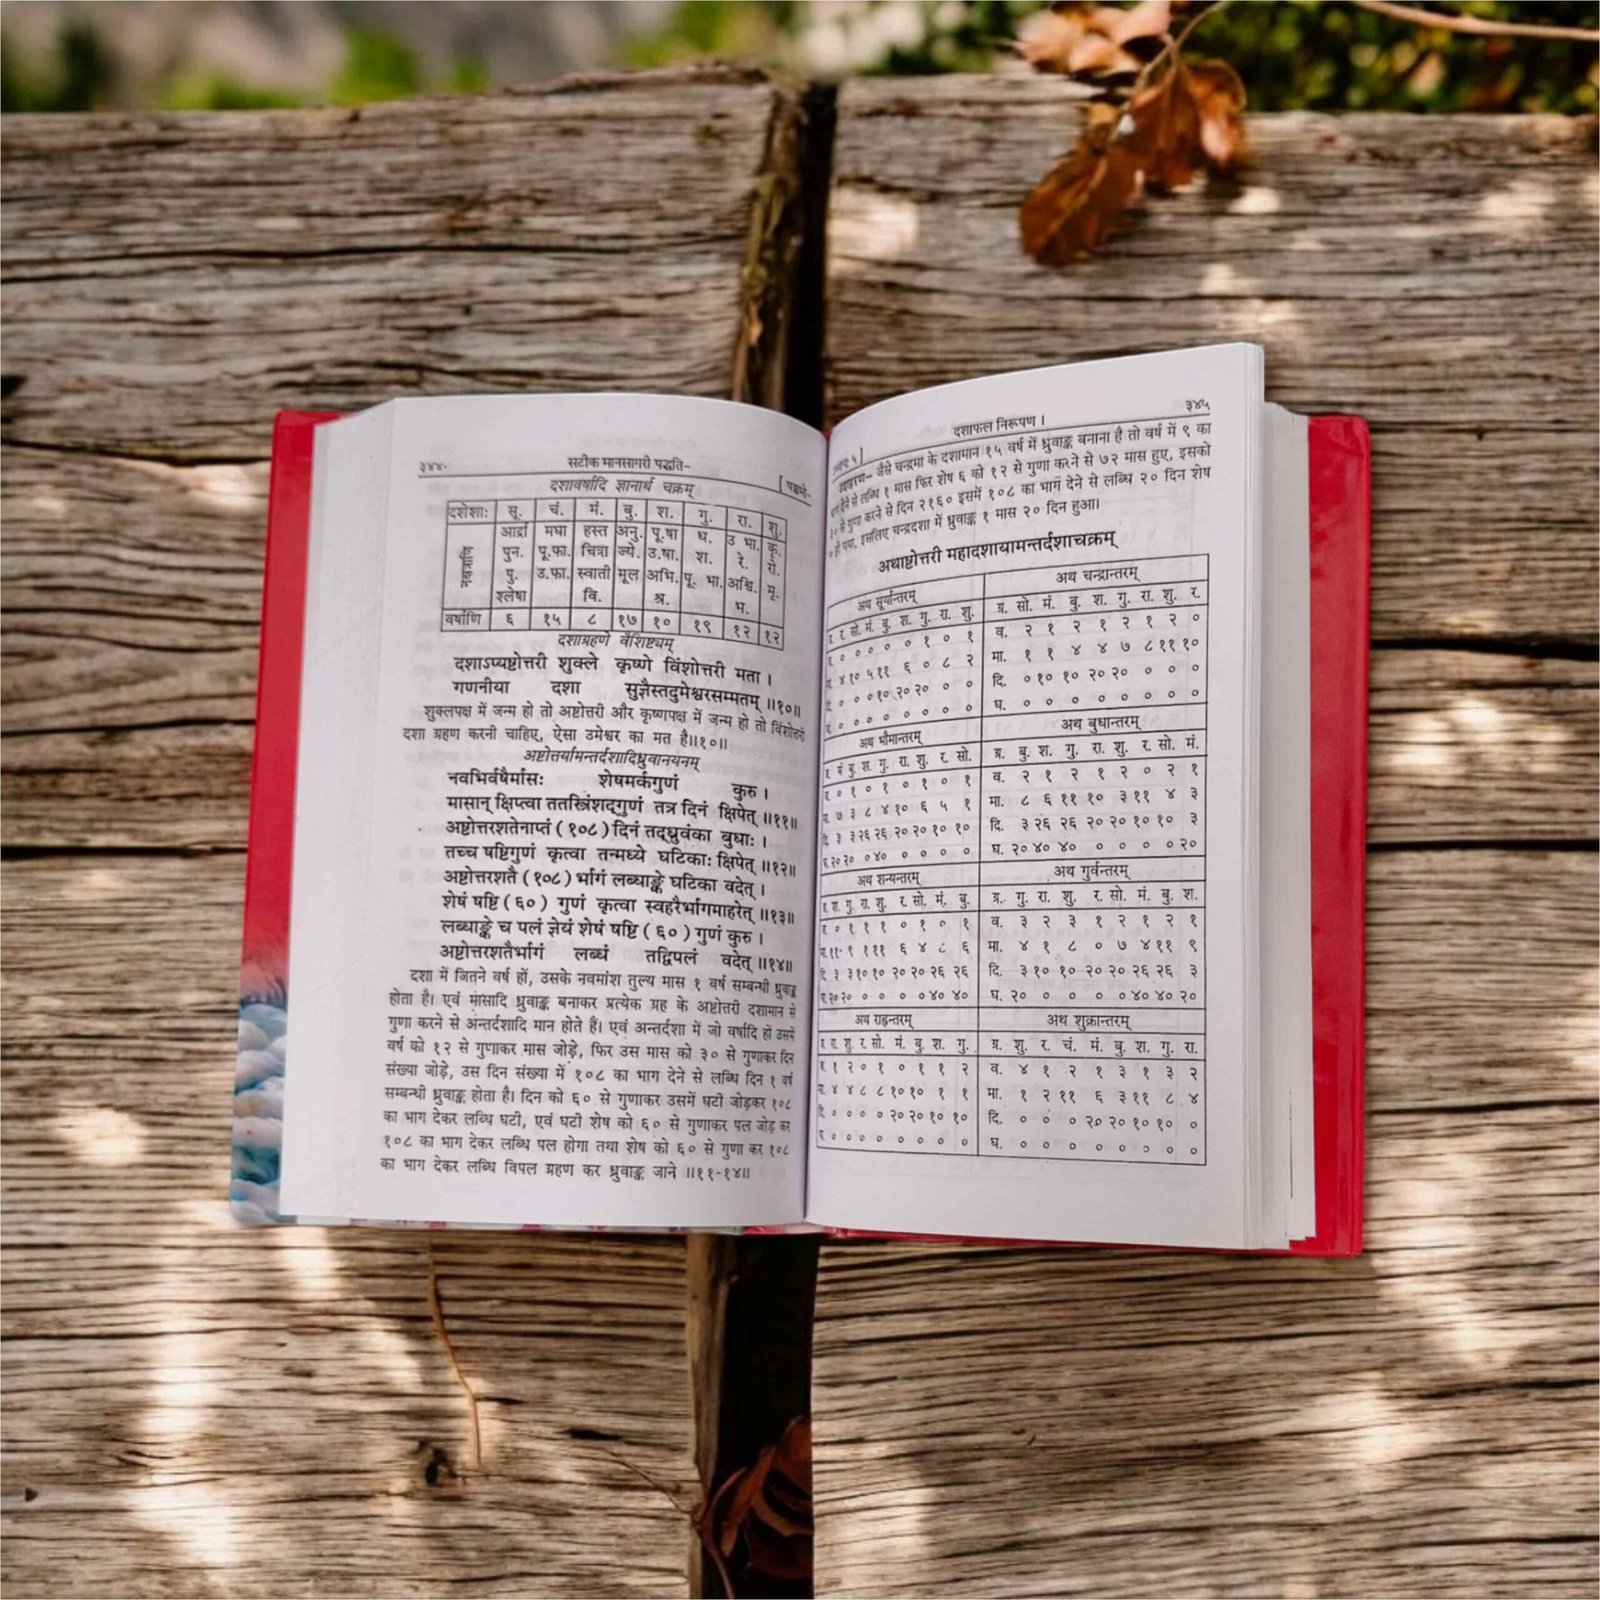 ३४४.
सटीक मानसागरी पद्धति-
[ पञ्चमो-
दशावर्षादि ज्ञानार्थ चक्रम्
दशेशाः सू. चं. मं. बु. श. गु. रा. शु.
नक्षत्राणि
आर्द्रा मघा हस्त अनु. पू.षा ध. उ भा. कृ.
पुन. पू.फा. चित्रा ज्ये. उ.षा. श. रे. रो.
पु. उ.फा. स्वाती मूल अभि. पू. भा. अश्वि. मृ.
श्लेषा वि. श्र. भ.
वर्षाणि ६ १५ ८ १७ १० १९ १२ १२
दशाग्रहणे वैशिष्ट्यम्
दशाऽप्यष्टोत्तरी शुक्ले कृष्णे विंशोत्तरी मता ।
गणनीया दशा सुज्ञैस्तदुमेश्वरसम्मतम् ॥१०॥
शुक्लपक्ष में जन्म हो तो अष्टोत्तरी और कृष्णपक्ष में जन्म हो तो विंशोत्तरी
दशा ग्रहण करनी चाहिए, ऐसा उमेश्वर का मत है॥१०॥
अष्टोत्तर्यामन्तर्दशादिध्रुवानयनम्
नवभिर्वर्षैर्मासः शेषमर्कगुणं कुरु ।
मासान् क्षिप्त्वा ततस्त्रिंशद्गुणं तत्र दिनं क्षिपेत् ॥११॥
अष्टोत्तरशतेनाप्तं (१०८) दिनं तद्ध्रुवंका बुधाः ।
तच्च षष्टिगुणं कृत्वा तन्मध्ये घटिकाः क्षिपेत् ॥१२॥
अष्टोत्तरशतै (१०८) र्भागं लब्धाङ्के घटिका वदेत् ।
शेषं षष्टि (६०) गुणं कृत्वा स्वहरैर्भागमाहरेत् ॥१३॥
लब्धाङ्के च पलं ज्ञेयं शेषं षष्टि (६०) गुणं कुरु ।
अष्टोत्तरशतैर्भागं लब्धं तद्विपलं वदेत् ॥१४॥
दशा में जितने वर्ष हों, उसके नवमांश तुल्य मास १ वर्ष सम्बन्धी ध्रुवाङ्क
होता है। एवं मासादि ध्रुवाङ्क बनाकर प्रत्येक ग्रह के अष्टोत्तरी दशामान से
गुणा करने से अन्तर्दशादि मान होते हैं। एवं अन्तर्दशा में जो वर्षादि हों उसमें
वर्ष को १२ से गुणाकर मास जोड़े, फिर उस मास को ३० से गुणाकर दिन
संख्या जोड़े, उस दिन संख्या में १०८ का भाग देने से लब्धि दिन १ वर्ष
सम्बन्धी ध्रुवाङ्क होता है। दिन को ६० से गुणाकर उसमें घटी जोड़कर १०८
का भाग देकर लब्धि घटी, एवं घटी शेष को ६० से गुणाकर पल जोड़ कर
१०८ का भाग देकर लब्धि पल होगा तथा शेष को ६० से गुणा कर १०८
का भाग देकर लब्धि विपल ग्रहण कर ध्रुवाङ्क जाने ॥११-१४॥
५]
दशाफल निरूपण ।
३४५
उदाहरण-- जैसे चन्द्रमा के दशामान १५ वर्ष में ध्रुवाङ्क बनाना है तो वर्ष में ९ का
देने से लब्धि १ मास फिर शेष ६ को १२ से गुणा करने से ७२ मास हुए, इसको
३० से गुणा करने से दिन २१६० इसमें १०८ का भाग देने से लब्धि २० दिन शेष
० हो गया, इसलिए चन्द्रदशा में ध्रुवाङ्क १ मास २० दिन हुआ।
अथाष्टोत्तरी महादशायामन्तर्दशाचक्रम्
अथ सूर्यान्तरम्
र. सो. मं. बु. श. गु. रा. शु.
० ० ० ० ० १ ० १
४ १० ५ ११ ६ ० ८ २
० ० १० १० २० २० ० ०
० ० ० ० ० ० ० ०
अथ चन्द्रान्तरम्
ग्र. सो. मं. बु. श. गु. रा. शु. र.
व. २ १ २ १ २ १ २ ०
मा. १ १ ४ ४ ७ ८ ११ १०
दि. ० १० १० २० २० ० ० ०
घ. ० ० ० ० ० ० ० ०
अथ भौमान्तरम्
मं बु. श. गु. रा. शु. र. सो.
० १ ० १ ० १ ० १
७ ३ ८ ४ १० ६ ५ १
३ ३ २६ २६ २० २० १० १०
२० २० ० ४० ० ० ० ०
अथ बुधान्तरम्
ग्र. बु. श. गु. रा. शु. र. सो. मं.
व. २ १ २ १ २ ० २ १
मा. ८ ६ ११ १० ३ ११ ४ ३
दि. ३ २६ २६ २० २० १० १० ३
घ. २० ४० ४० ० ० ० ० २०
अथ शन्यन्तरम्
श. गु. रा. शु. र. सो. मं. बु.
० १ १ १ ० १ ० १
११ ९ १ ११ ६ ४ ८ ६
३ ३ १० १० २० २० २६ २६
२० २० ० ० ० ० ४० ४०
अथ गुर्वन्तरम्
ग्र. गु. रा. शु. र. सो. मं. बु. श.
व. ३ २ ३ १ २ १ २ १
मा. ४ १ ८ ० ७ ४ ११ ९
दि. ३ १० १० २० २० २६ २६ ३
घ. २० ० ० ० ० ४० ४० २०
अथ राह्वन्तरम्
रा. शु. र. सो. मं. बु. श. गु.
१ २ ० १ ० १ १ २
४ ४ ८ ८ १० १० १ १
० ० ० ० २० २० १० १०
० ० ० ० ० ० ० ०
अथ शुक्रान्तरम्
ग्र. शु. र. चं. मं. बु. श. गु. रा.
व. ४ १ २ १ ३ १ ३ २
मा. १ २ ११ ६ ३ ११ ८ ४
दि. ० ० ० २० २० १० १० ०
घ. ० ० ० ० ० ० ० ०